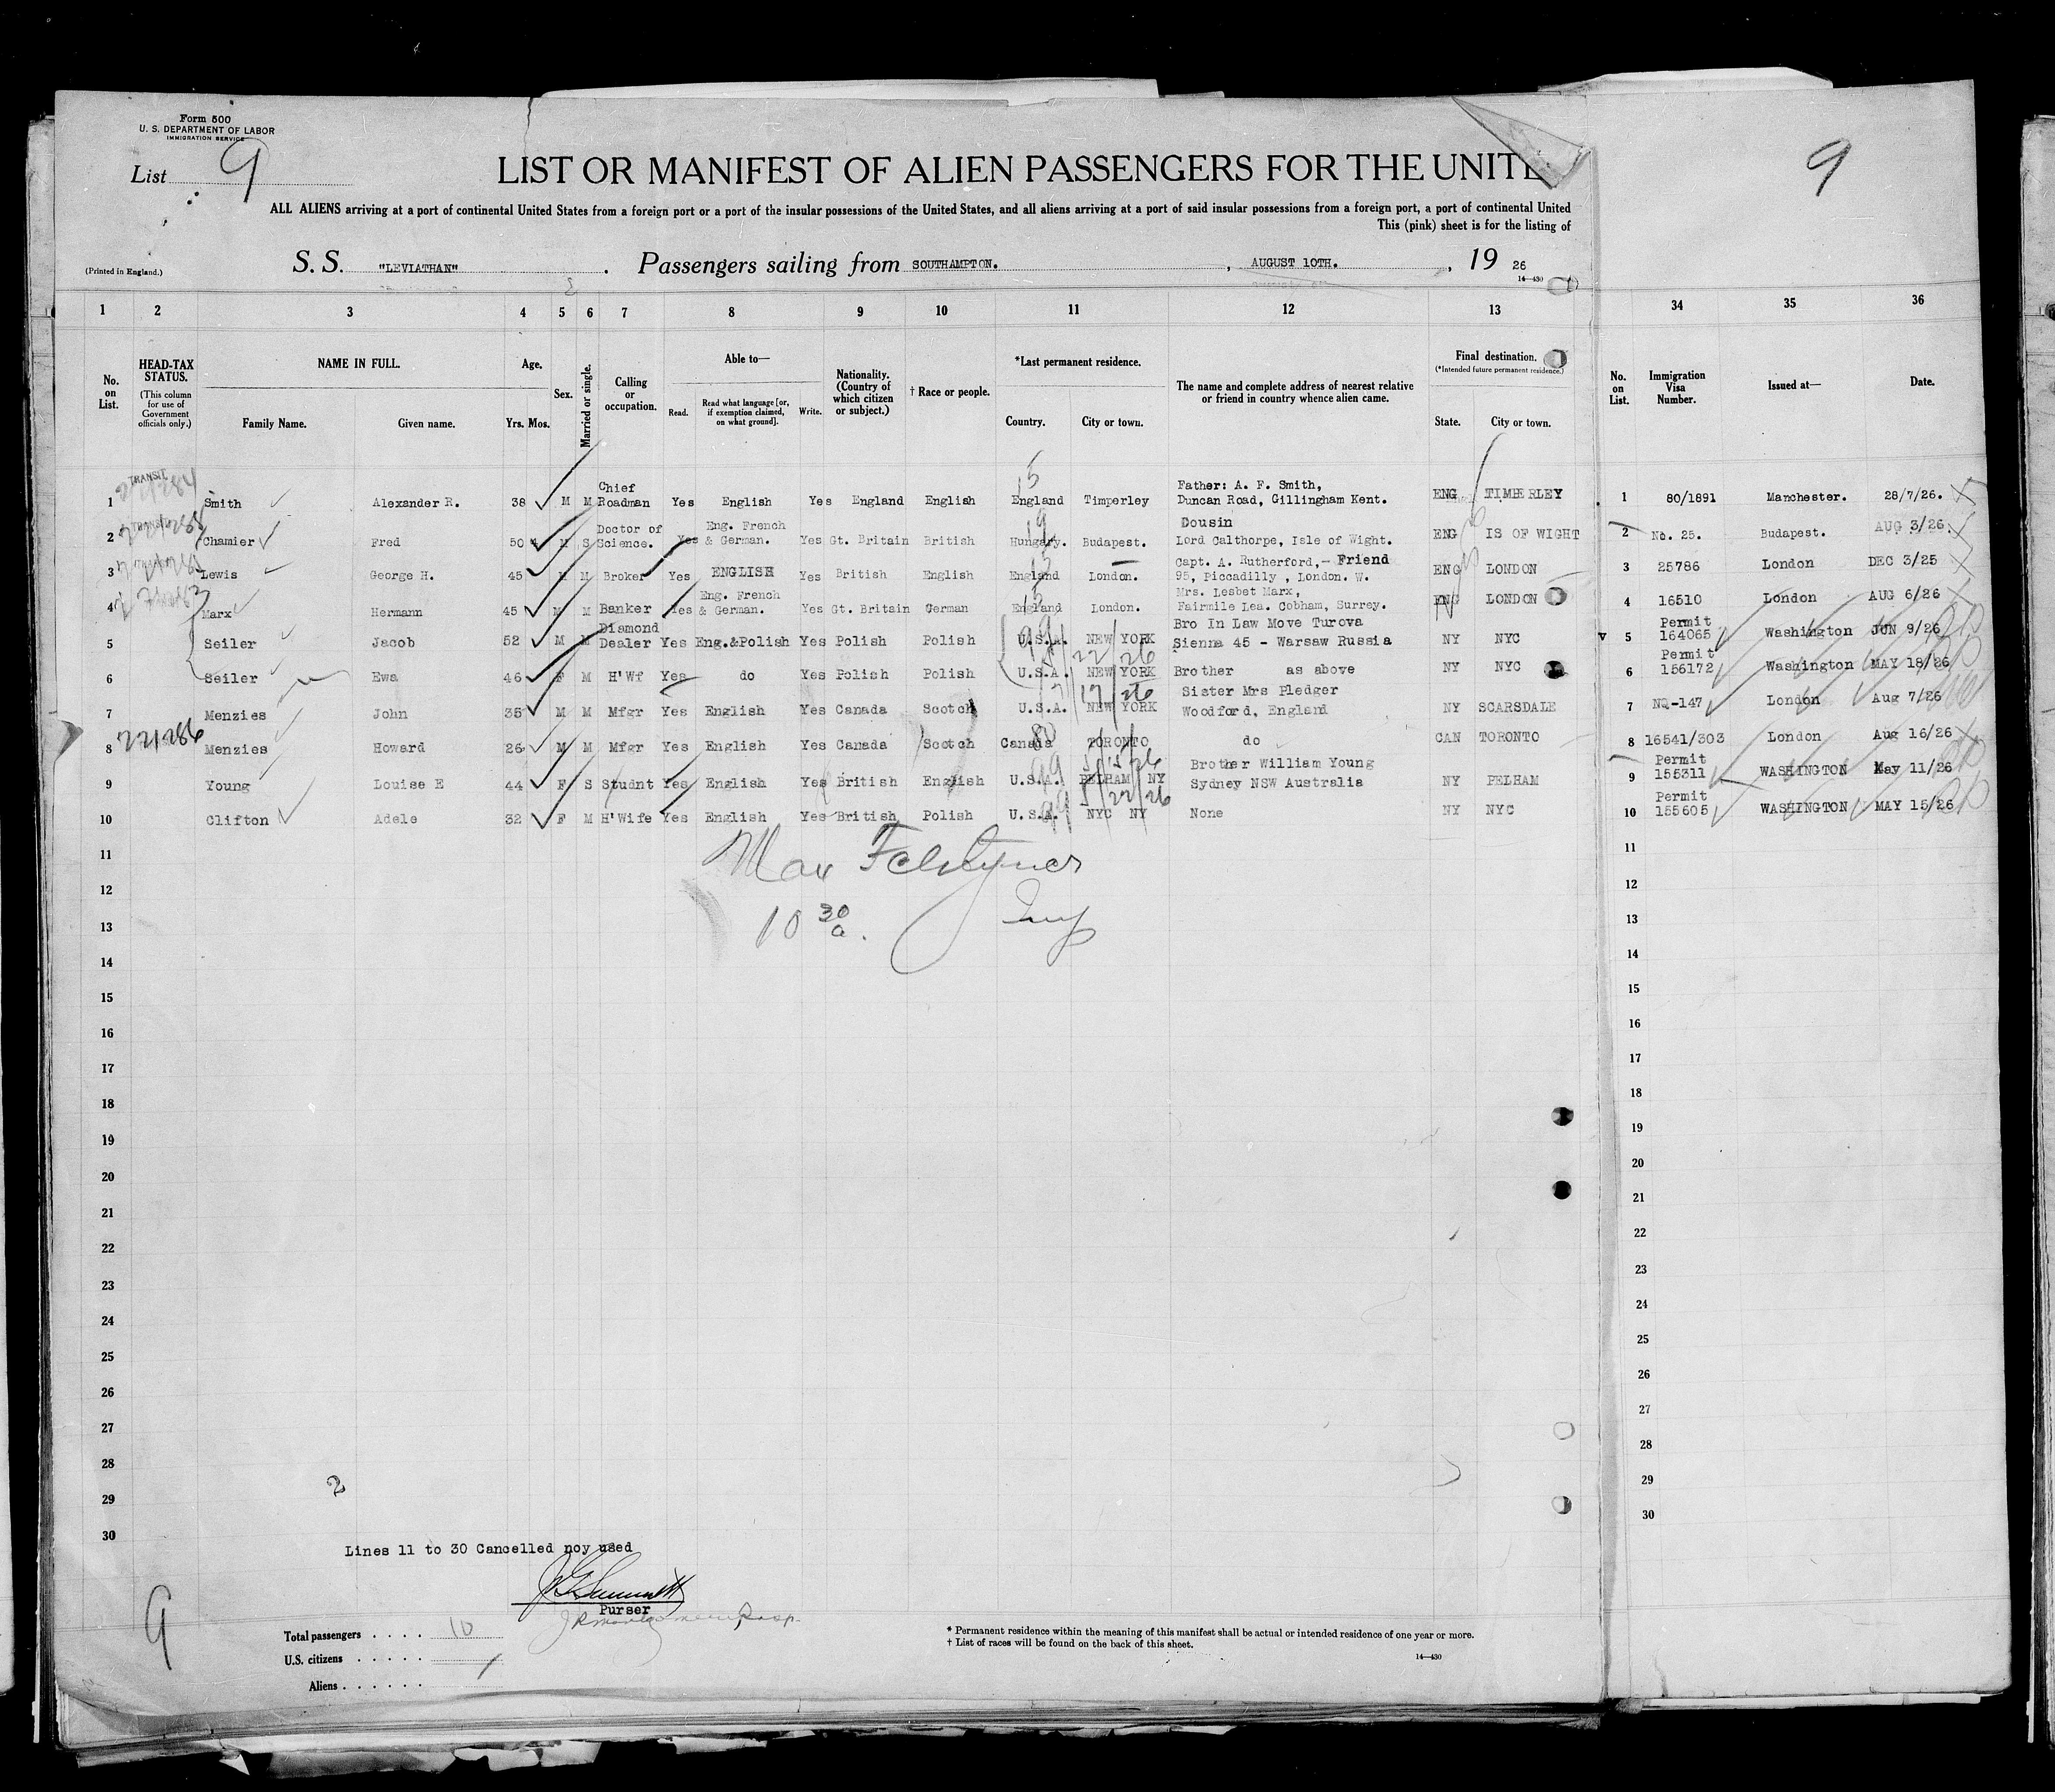 Form 500
U. S. DEPARTMENT OF LABOR
IMMIGRATION SERVICE
List 9
9
LIST OR MANIFEST OF ALIEN PASSENGERS FOR THE UNITE
ALL ALIENS arriving at a port of continental United States from a foreign port or a port of the insular possessions of the United States, and all aliens arriving at a port of said insular possessions from a foreign port, a port of continental United
This (pink) sheet is for the listing of
(Printed in England.)
S. S. "LEVIATHAN" . Passengers sailing from SOUTHAMPTON. , AUGUST 10TH. , 19 26
14—430
1 2 3 4 5 6 7 8 9 10 11 12 13 34 35 36
No. on List.
HEAD-TAX STATUS.
(This column for use of Government officials only.)
NAME IN FULL.
Family Name. Given name.
Age.
Yrs. Mos.
Sex.
Married or single.
Calling or occupation.
Able to—
Read. Read what language [or, if exemption claimed, on what ground]. Write.
Nationality. (Country of which citizen or subject.)
† Race or people.
*Last permanent residence.
Country. City or town.
The name and complete address of nearest relative or friend in country whence alien came.
Final destination.
(*Intended future permanent residence.)
State. City or town.
No. on List.
Immigration Visa Number.
Issued at—
Date.
TRANSIT
1 Smith Alexander R. 38 M M Chief Roadman Yes English Yes England English England Timperley Father: A. F. Smith, Duncan Road, Gillingham Kent. ENG TIMPERLEY 1 80/1891 Manchester. 28/7/26.
2 Chamier Fred 50 M S Doctor of Science. Yes Eng. French & German. Yes Gt. Britain British Hungary. Budapest. Cousin Lord Calthorpe, Isle of Wight. ENG IS OF WIGHT 2 No. 25. Budapest. AUG 3/26.
3 Lewis George H. 45 M M Broker Yes ENGLISH Yes British English England London. Capt. A. Rutherford,- Friend 95, Piccadilly , London. W. ENG LONDON 3 25786 London DEC 3/25
4 Marx Hermann 45 M M Banker Yes Eng. French & German. Yes Gt. Britain German England London. Mrs. Lesbet Marx, Fairmile Lea. Cobham, Surrey. ENG LONDON 4 16510 London AUG 6/26
5 Seiler Jacob 52 M M Diamond Dealer Yes Eng.&Polish Yes Polish Polish U.S.A. NEW YORK Bro In Law Move Turova Sienna 45 - Warsaw Russia NY NYC 5 Permit 164065 Washington JUN 9/26
6 Seiler Ewa 46 F M H'Wf Yes do Yes Polish Polish U.S.A. NEW YORK Brother as above NY NYC 6 Permit 156172 Washington MAY 18/26
7 Menzies John 35 M M Mfgr Yes English Yes Canada Scotch U.S.A. NEW YORK Sister Mrs Pledger Woodford, England NY SCARSDALE 7 NQ-147 London Aug 7/26
221286
8 Menzies Howard 26 M M Mfgr Yes English Yes Canada Scotch Canada TORONTO do CAN TORONTO 8 16541/303 London Aug 16/26
9 Young Louise E 44 F S Studnt Yes English Yes British English U.S.A. PELHAM NY Brother William Young Sydney NSW Australia NY PELHAM 9 Permit 155311 WASHINGTON May 11/26
10 Clifton Adele 32 F M H'Wife Yes English Yes British Polish U.S.A. NYC NY None NY NYC 10 Permit 155605 WASHINGTON MAY 15/26
11 Max 11
12 12
13 10 30 a. Insp 13
14 14
15 15
16 16
17 17
18 18
19 19
20 20
21 21
22 22
23 23
24 24
25 25
26 26
27 27
28 28
29 29
30 30
Lines 11 to 30 Cancelled noy used
Purser
9
Total passengers . . . . 10
U.S. citizens . . . . .
Aliens . . . . . .
* Permanent residence within the meaning of this manifest shall be actual or intended residence of one year or more.
† List of races will be found on the back of this sheet.
14—430